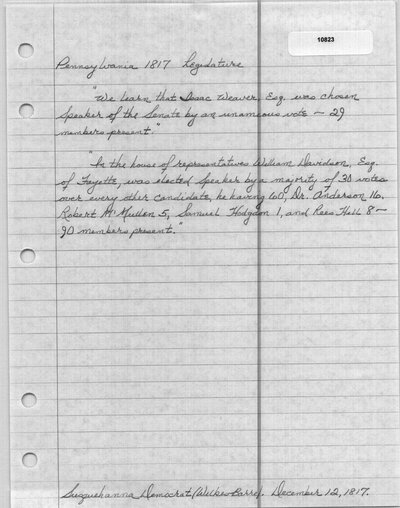 10823
Pennsylvania 1817 Legislature
"We learn that Isaac Weaver, Esq. was chosen
speaker of the Senate by an unamious vote - 29
members present."
"In the house of representatives William Davidson, Esq.
of Fayette, was elected speaker by a majority of 30 votes
over every other candidate, he having 60, Dr. Anderson 16.
Robert McMullen 5, Samuel Hodgdon 1, and Rees Hill 8 -
90 members present."
Susquehanna Democrat (Wilkes-Barre). December 12, 1817.